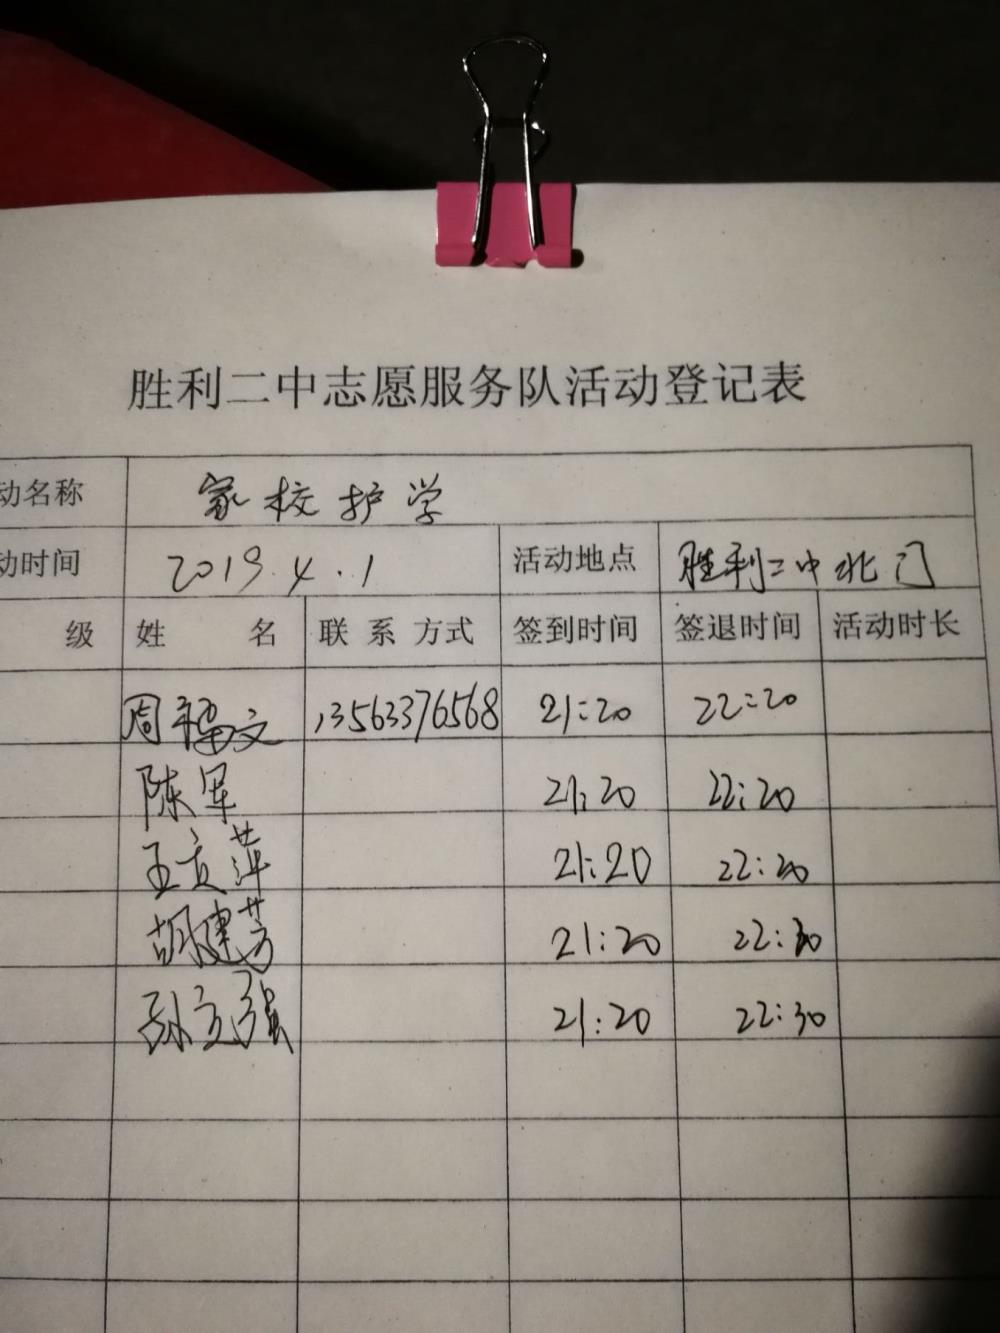 胜利二中志愿服务队活动登记表
动名称 家校护学
动时间 2019.4.1 活动地点 胜利二中北门
级 姓 名 联系方式 签到时间 签退时间 活动时长
周福文 13563376568 21:20 22:20
陈军 21:20 22:20
王立萍 21:20 22:20
胡建芳 21:20 22:30
孙立强 21:20 22:30